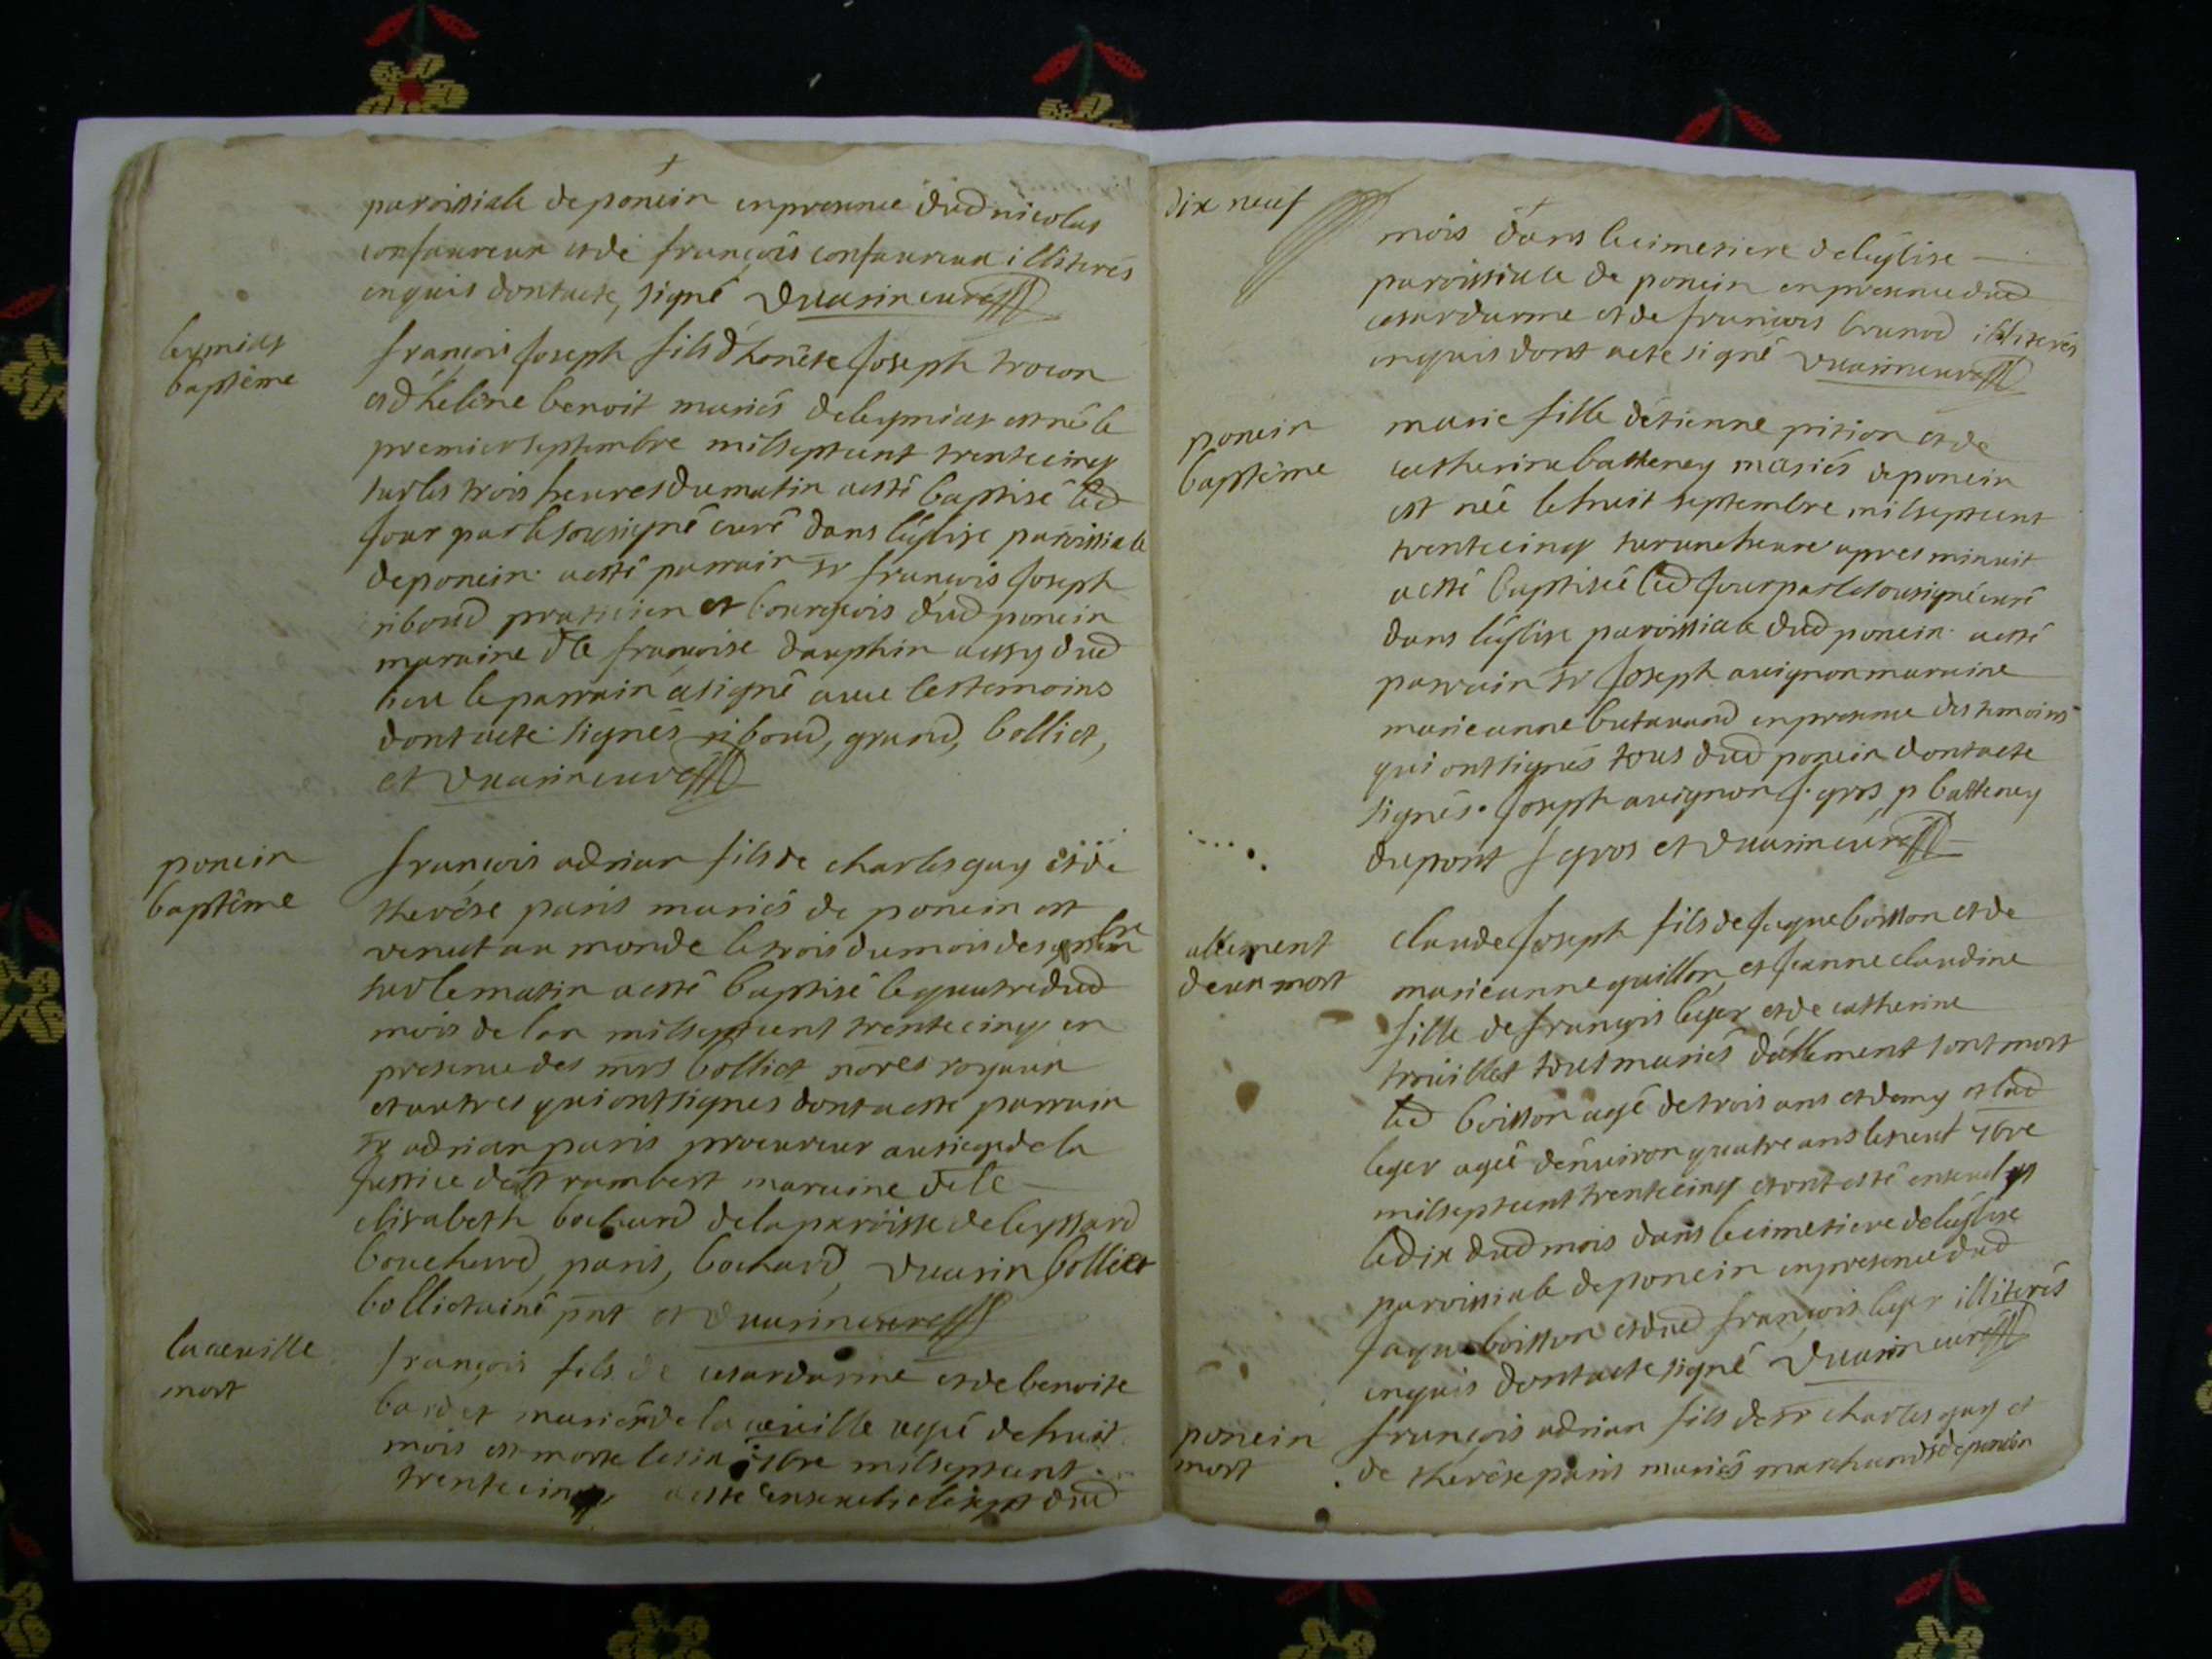 paroissiale de poncin en presence dud nicolas
confaureux et de françois confaureux illiterés
enquis dont acte, signé Vuarin curé
leymiat
baptême
françois joseph fils d'honête joseph trocon
et d'heleine benoit mariés de leymiat est né le
premier septembre mil sept cent trente cinq
sur les trois heures du matin a esté baptisé led
jour par le sousigné curé dans l'église paroissiale
de poncin. a esté parrain sr françois joseph
riboud praticien et bourgeois dud poncin
maraine dlle françoise dauphin aussy dud
lieu le parrain a signé avec les temoins
dont acte. signés riboud, grand, bolliet,
et Vuarin curé
poncin
baptême
françois adrian fils de charles guy et de
therése paris mariés de poncin est
venut au monde le trois du mois de septembre
sur le matin a esté baptisé le quatre dud
mois de l'an mil sept cent trente cinq en
presence des mrs bolliet nores royaux
et autres qui ont signes dont a esté parrain
sr adrian paris procureur au siege de la
justice de st rambert maraine delle
elisabeth bochard de la paroisse de leyssard
bouchard, paris, bochard, Vuarin bolliet
bolliet ainé pnt et Vuarin curé
mort
françois fils de cesar darme et de benoite
bardet mariés de la cueuille agé de huit
mois est mort le six 7bre mil sept cent
trente cinq a esté enseveli le sept dud
dix neuf
mois dans le cimetiere de l'église
paroissiale de poncin en presence dud
cesar darme et de françois brunod illiterés
enquis dont acte signé Vuarin curé
poncin
baptême
marie fille d'étienne pition et de
catherine batteney mariés de poncin
est née le huit septembre mil sept cent
trente cinq sur une heure apres minuit
a esté baptisée led jour par le sousigné curé
dans l'église paroissiale dud poncin. a esté
parrain sr joseph avignon maraine
marie anne butavand en presence des temoins
qui ont signés tous dud poncin dont acte
signés. joseph avignon j. gros, p batteney
dupont j gros et Vuarin curé
allement
deux mort
claude joseph fils de jaque boisson et de
marie anne guillon, et jeanne claudine
fille de françois leger et de catherine
trouillet tous mariés d'allement sont mort
led boisson agé de trois ans et demy et lad
leger agée d'environ quatre ans le neuf 7bre
mil sept cent trente cinq et ont esté ensevelys
le dix dud mois dans le cimetiere de l'église
paroissiale de poncin en presence dud
jaque boisson et dud françois leger illiterés
enquis dont acte signé Vuarin curé
poncin
mort
françois adrian fils de sr charles guy et
de therése paris mariés marchands de poncin